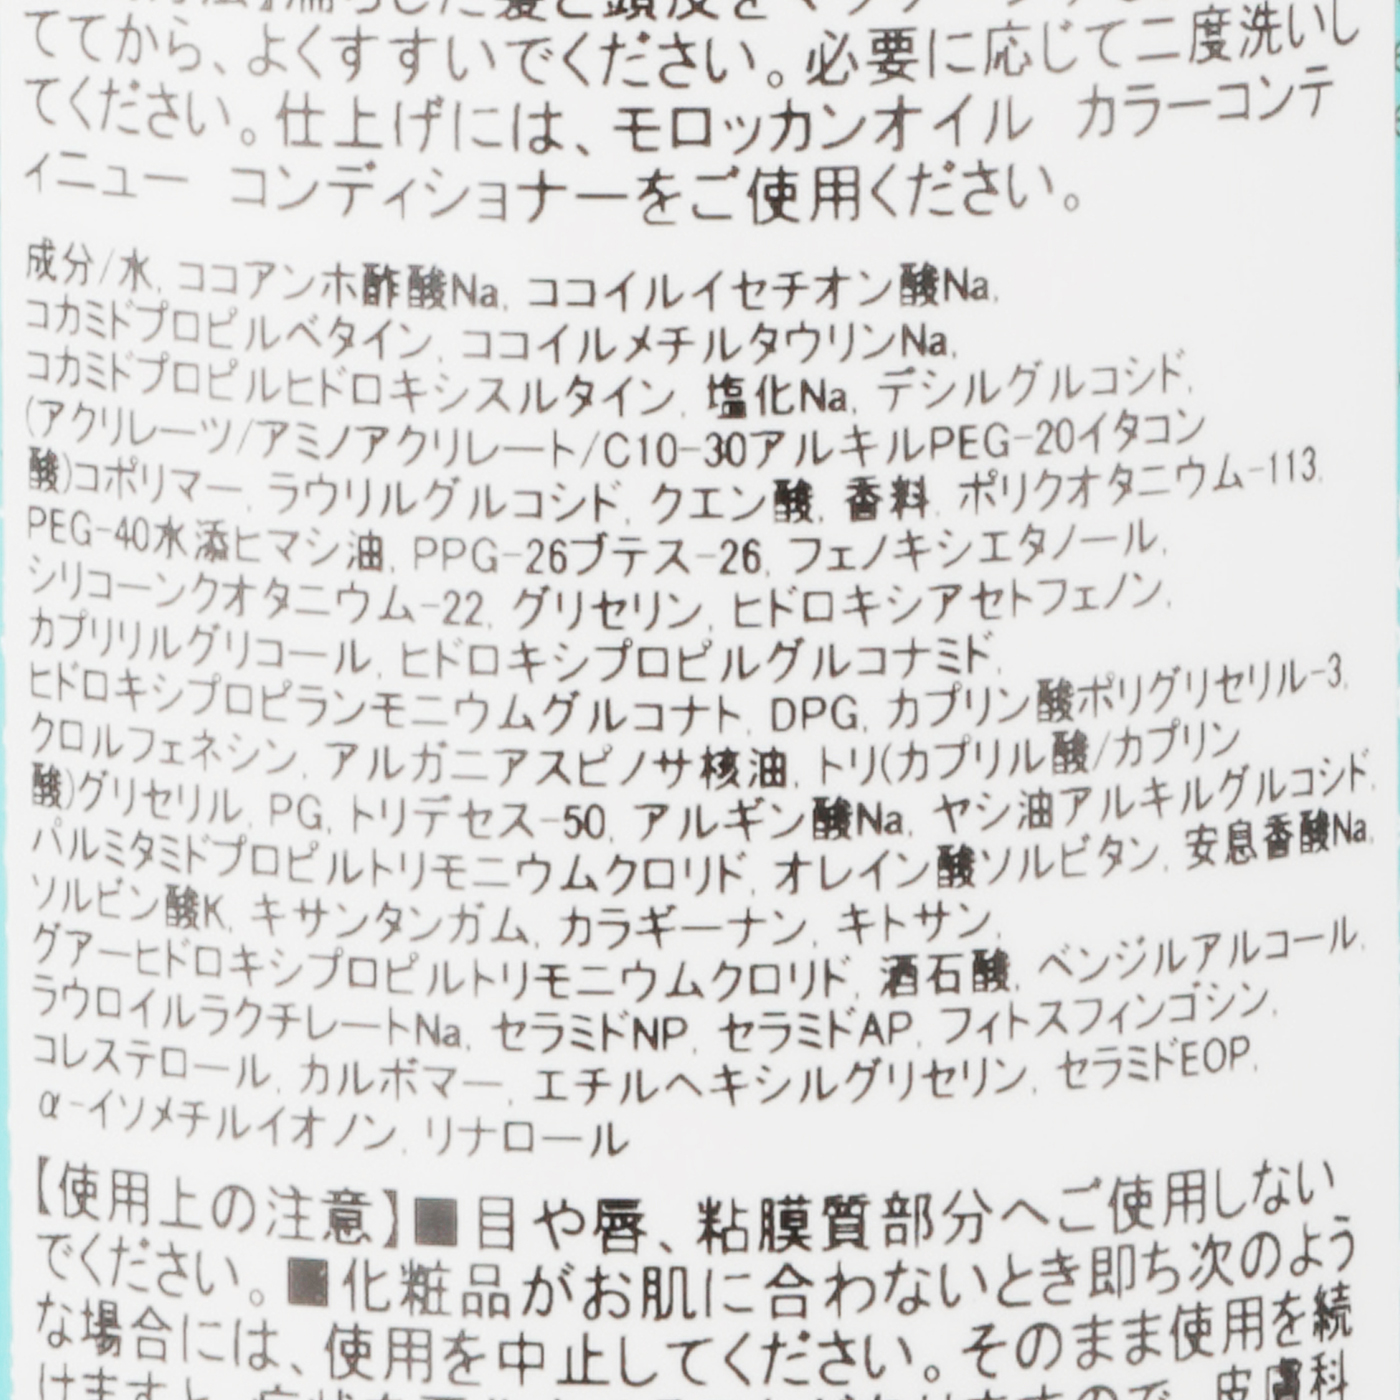 濡らした髪と頭皮を
ててから、よくすすいでください。必要に応じて二度洗いし
てください。仕上げには、モロッカンオイル カラーコンテ
ィニュー コンディショナーをご使用ください。
成分/水, ココアンホ酢酸Na, ココイルイセチオン酸Na,
コカミドプロピルベタイン, ココイルメチルタウリンNa,
コカミドプロピルヒドロキシスルタイン, 塩化Na, デシルグルコシド,
(アクリレーツ/アミノアクリレート/C10-30アルキルPEG-20イタコン
酸)コポリマー, ラウリルグルコシド, クエン酸, 香料, ポリクオタニウム-113,
PEG-40水添ヒマシ油, PPG-26ブテス-26, フェノキシエタノール,
シリコーンクオタニウム-22, グリセリン, ヒドロキシアセトフェノン,
カプリリルグリコール, ヒドロキシプロピルグルコナミド,
ヒドロキシプロピランモニウムグルコナト, DPG, カプリン酸ポリグリセリル-3,
クロルフェネシン, アルガニアスピノサ核油, トリ(カプリル酸/カプリン
酸)グリセリル, PG, トリデセス-50, アルギン酸Na, ヤシ油アルキルグルコシド,
パルミタミドプロピルトリモニウムクロリド, オレイン酸ソルビタン, 安息香酸Na,
ソルビン酸K, キサンタンガム, カラギーナン, キトサン,
グアーヒドロキシプロピルトリモニウムクロリド, 酒石酸, ベンジルアルコール,
ラウロイルラクチレートNa, セラミドNP, セラミドAP, フィトスフィンゴシン,
コレステロール, カルボマー, エチルヘキシルグリセリン, セラミドEOP,
α-イソメチルイオノン, リナロール
【使用上の注意】■目や唇、粘膜質部分へご使用しない
でください。■化粧品がお肌に合わないとき即ち次のよう
な場合には、使用を中止してください。そのまま使用を続
けますと、症状を 皮膚科